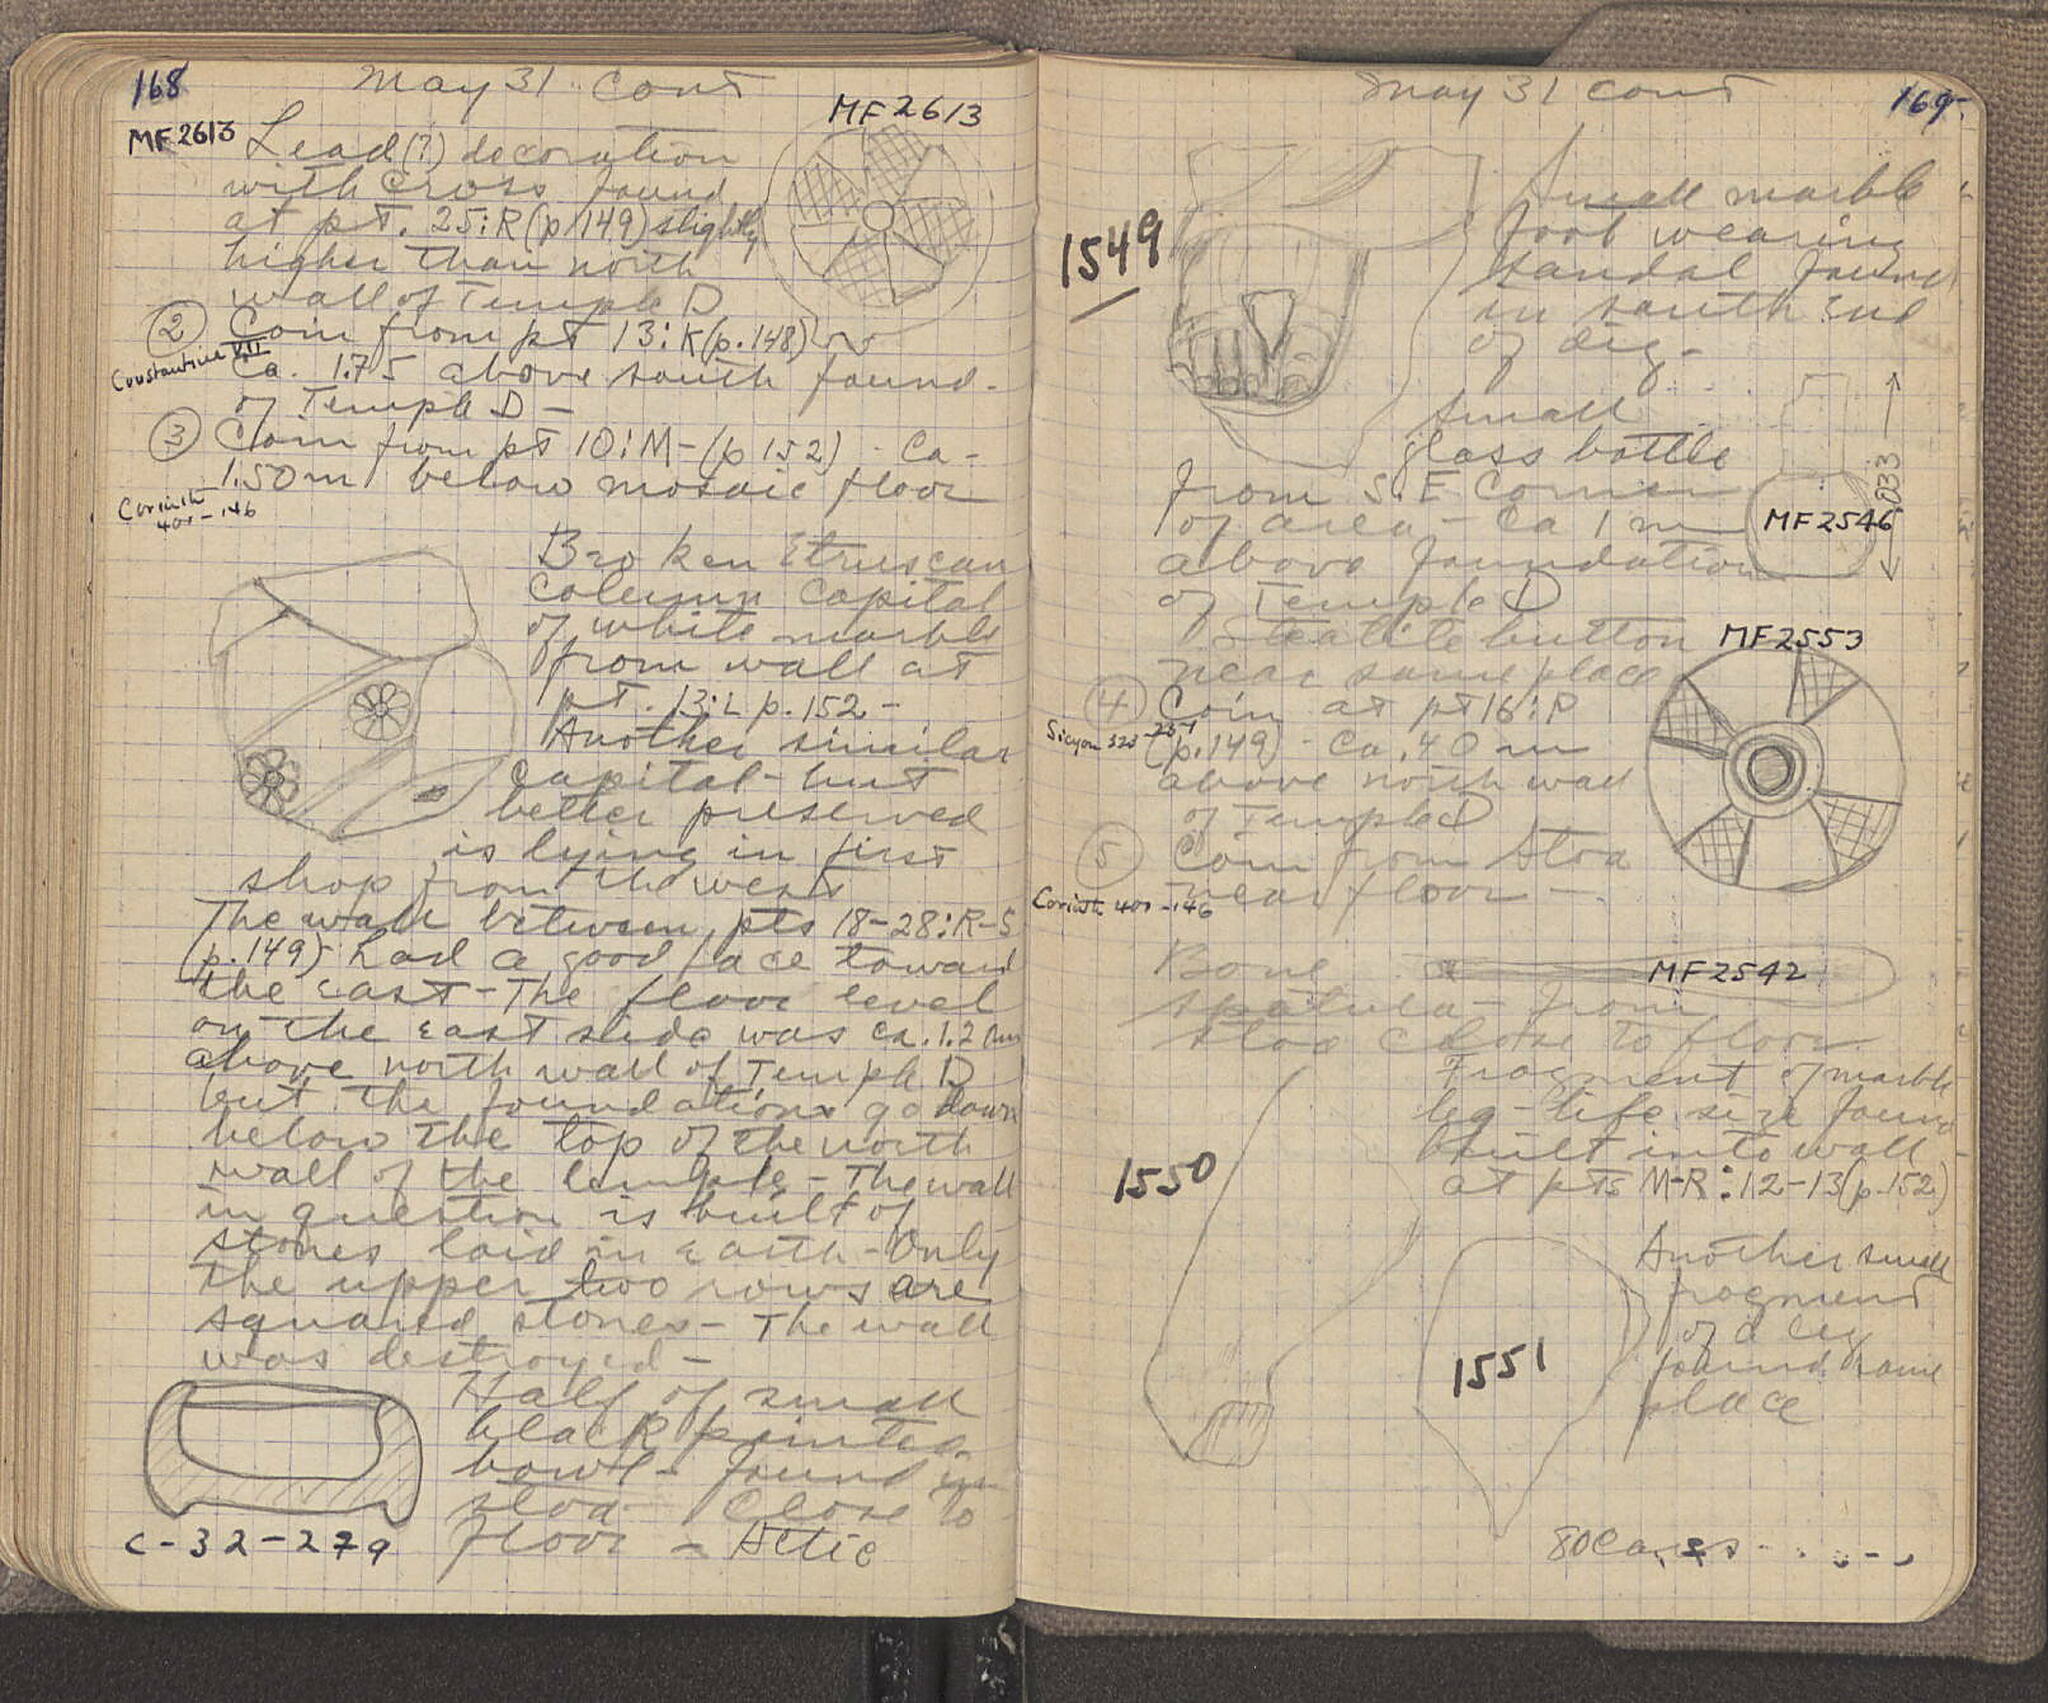 168
May 31 cont
MF 2613
MF 2613
Lead (?) decoration
with cross found
at pt. 25:R (p 149) slightly
higher than north
wall of Temple D
② Coin from pt 13:K (p. 148)
Constantine VII
Ca. 1.75 above south found.
of Temple D –
③ Coin from pt 10:M – (p 152) – Ca –
1.50m below mosaic floor
Corinth
400-146
Broken Etruscan
column capital
of white marble
from wall at
pt. 13:L p. 152 –
Another similar
capital – but
better preserved
is lying in first
shop from the west
The wall between pts 18-28:R-S
(p. 149) had a good face toward
the east – The floor level
on the east side was ca. 1.20m
above north wall of Temple D
but the foundations go down
below the top of the north
wall of the temple – The wall
in question is built of
stones laid in earth – Only
the upper two rows are
squared stones – The wall
was destroyed –
Half of small
black painted
bowl – found in
stoa close to
floor – Attic
C-32-279
169
May 31 cont
1549
Small marble
foot wearing
sandal found
in south end
of dig –
Small
glass bottle
from S.E corner
of area – Ca 1 m
above foundation
of Temple D
.033
MF 2546
Steatite button
near same place
MF 2553
④ Coin at pt 16:P
Sicyon 323-251
(p. 149) – Ca .40 m
above north wall
of Temple D
⑤ Coin from Stoa
near floor –
Corinth 400-146
Bone
MF 2542
spatula – from
stoa close to floor
Fragment of marble
leg – life size found
built into wall
at pts M-R:12-13 (p. 152)
1550
Another small
fragment
of a leg
found same
place
1551
80 Cars